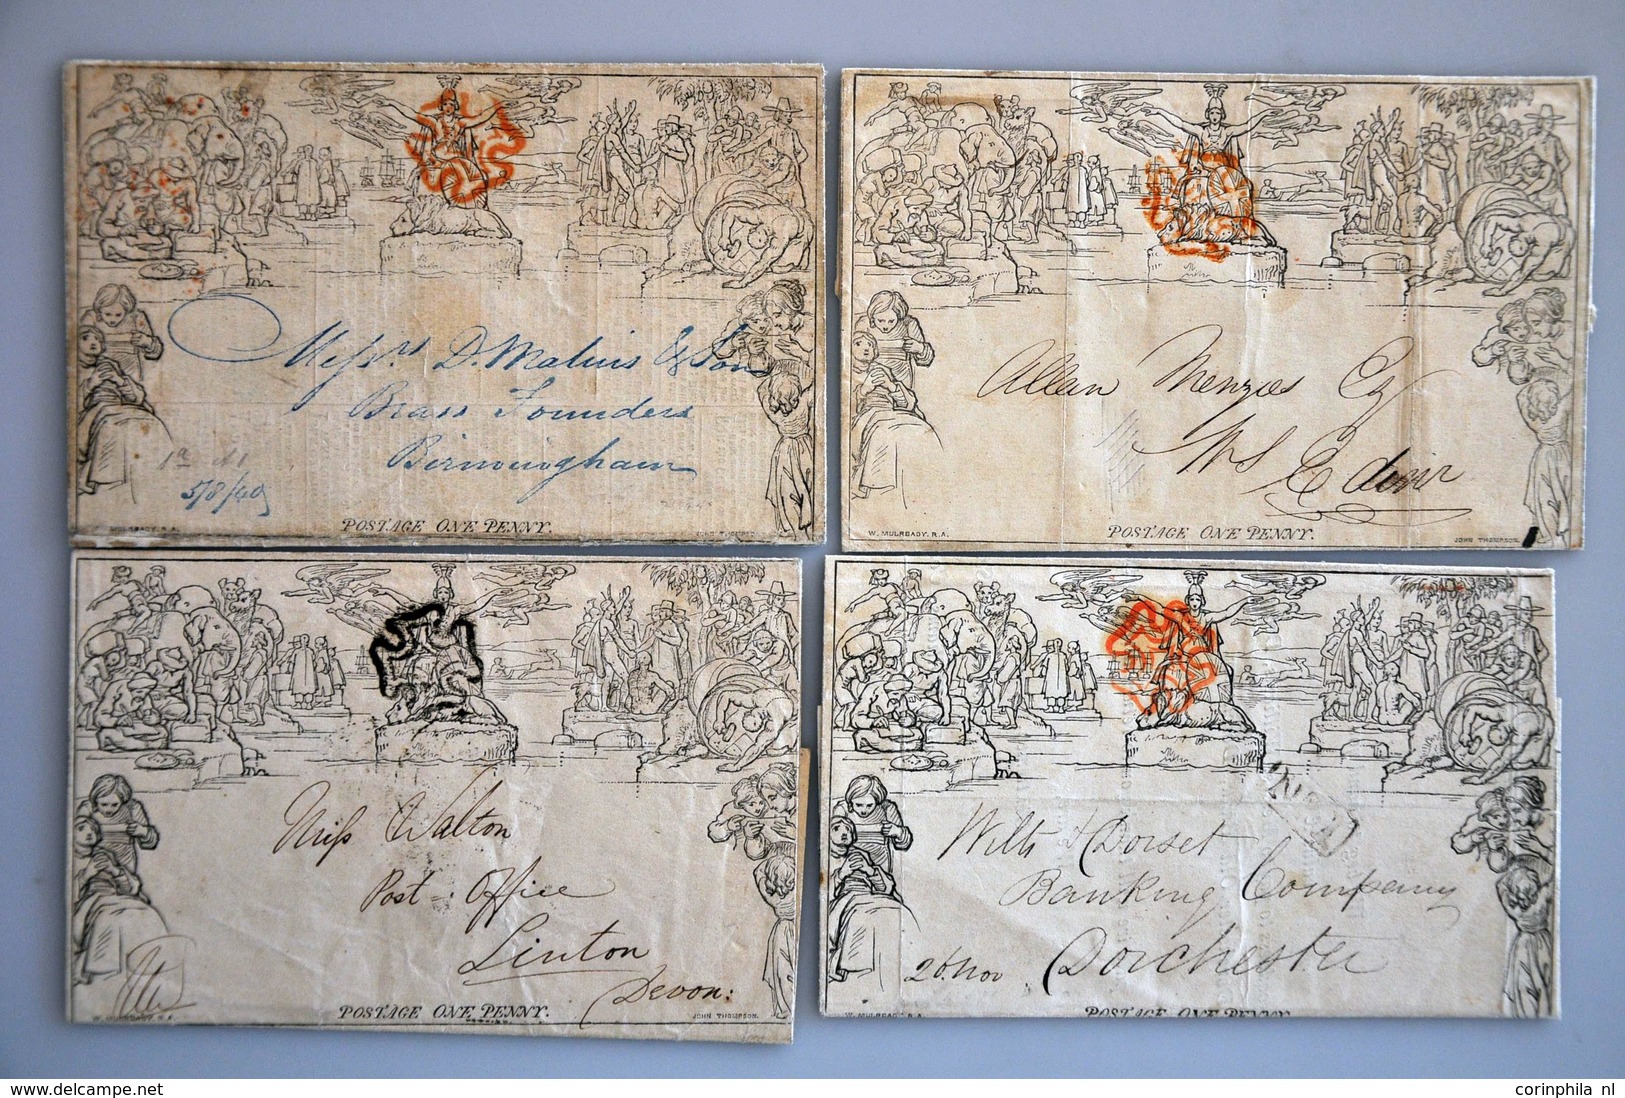 Messrs. D. Malins & Son
Brass Founders
Birmingham
5/8/40
POSTAGE ONE PENNY.
MULREADY. R.A.
JOHN THOMPSON
Allan Menzies Esq
WS Edinr
W. MULREADY. R.A.
POSTAGE ONE PENNY.
JOHN THOMPSON.
Miss Walton
Post Office
Linton
Devon:
W. MULREADY. R.A.
POSTAGE ONE PENNY.
JOHN THOMPSON.
Wilts & Dorset
Banking Company
Dorchester
26. Nov
W. MULREADY. R.A.
POSTAGE ONE PENNY.
www.delcampe.net
corinphila nl